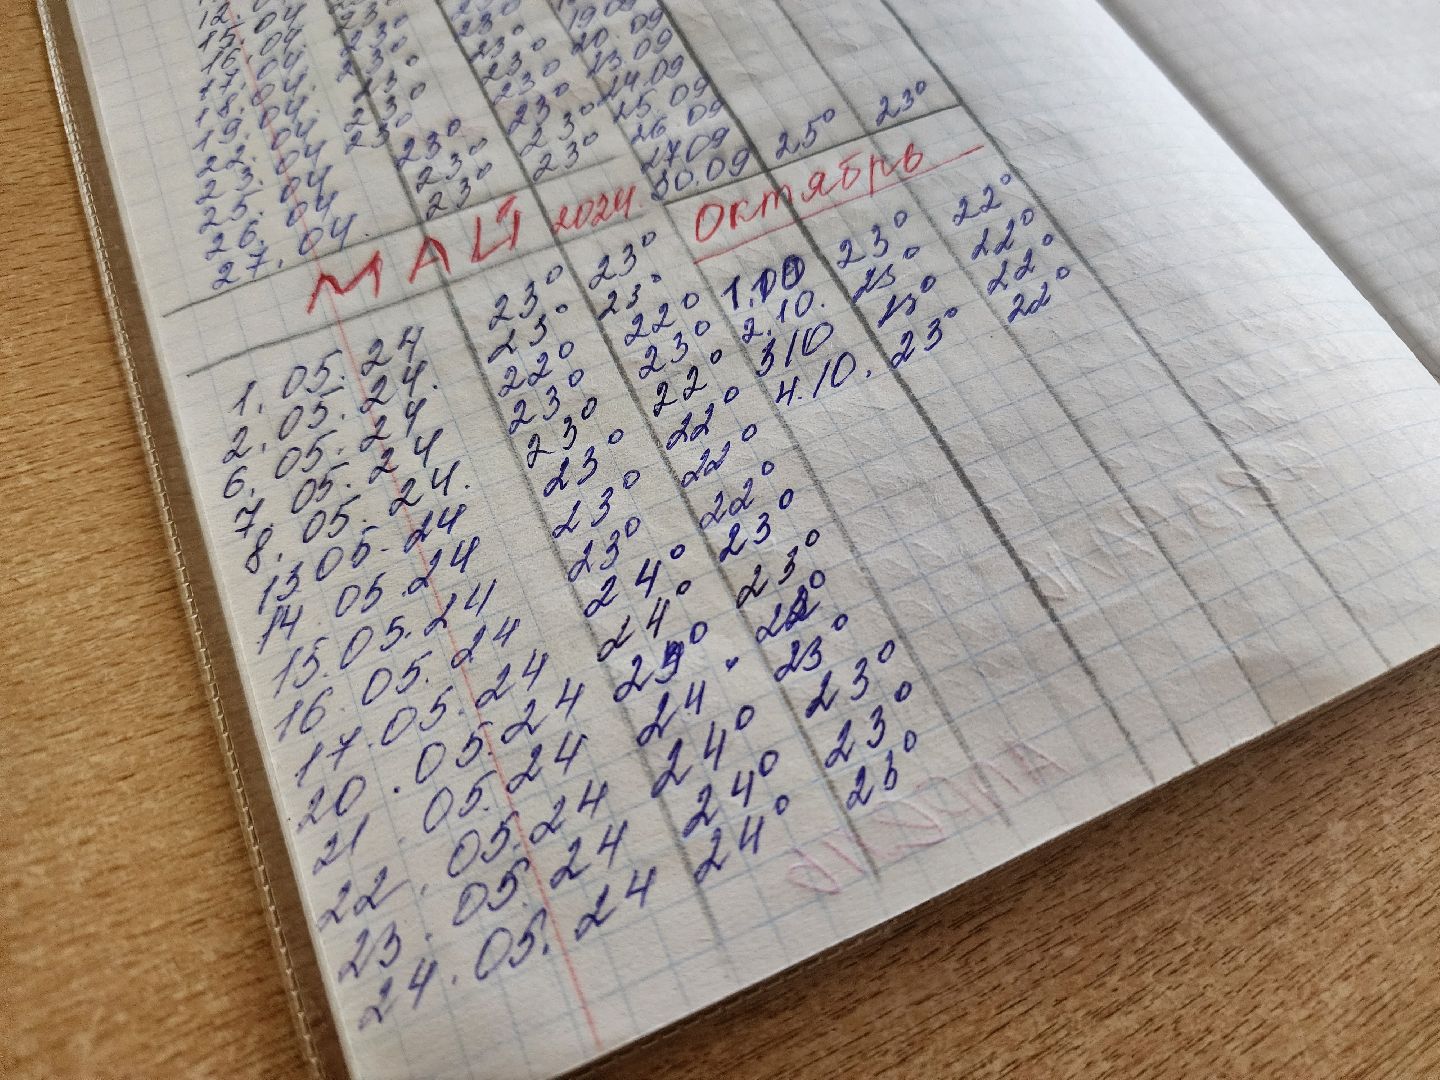 12.04 23° 23°
15.04 23° 23° 19.09
16.04. 23° 23° 20.09
17.04. 23° 23° 23.09
18.04. 23° 23° 24.09
19.04 23° 23° 25.09
22.04 23° 23° 26.09
23.04 23° 27.09
25.04 30.09 25° 23°
26.04
27.04
МАЙ 2024. Октябрь
1.05.24 23° 23° 1.10 23° 22°
2.05.24. 23° 23° 2.10. 23° 22°
6.05.24 22° 22° 3 10 23° 22°
7.05.24 23° 23° 4.10. 23° 22°
8.05.24. 23° 22°
13 05.24 23° 22°
14.05.24 23° 22°
15.05.24 23° 22°
16.05.24 24° 23°
17.05.24 24° 23°
20.05.24 23° 22°
21.05.24 24° 23°
22.05.24 24° 23°
23.05.24 24° 23°
24.05.24 24° 23°